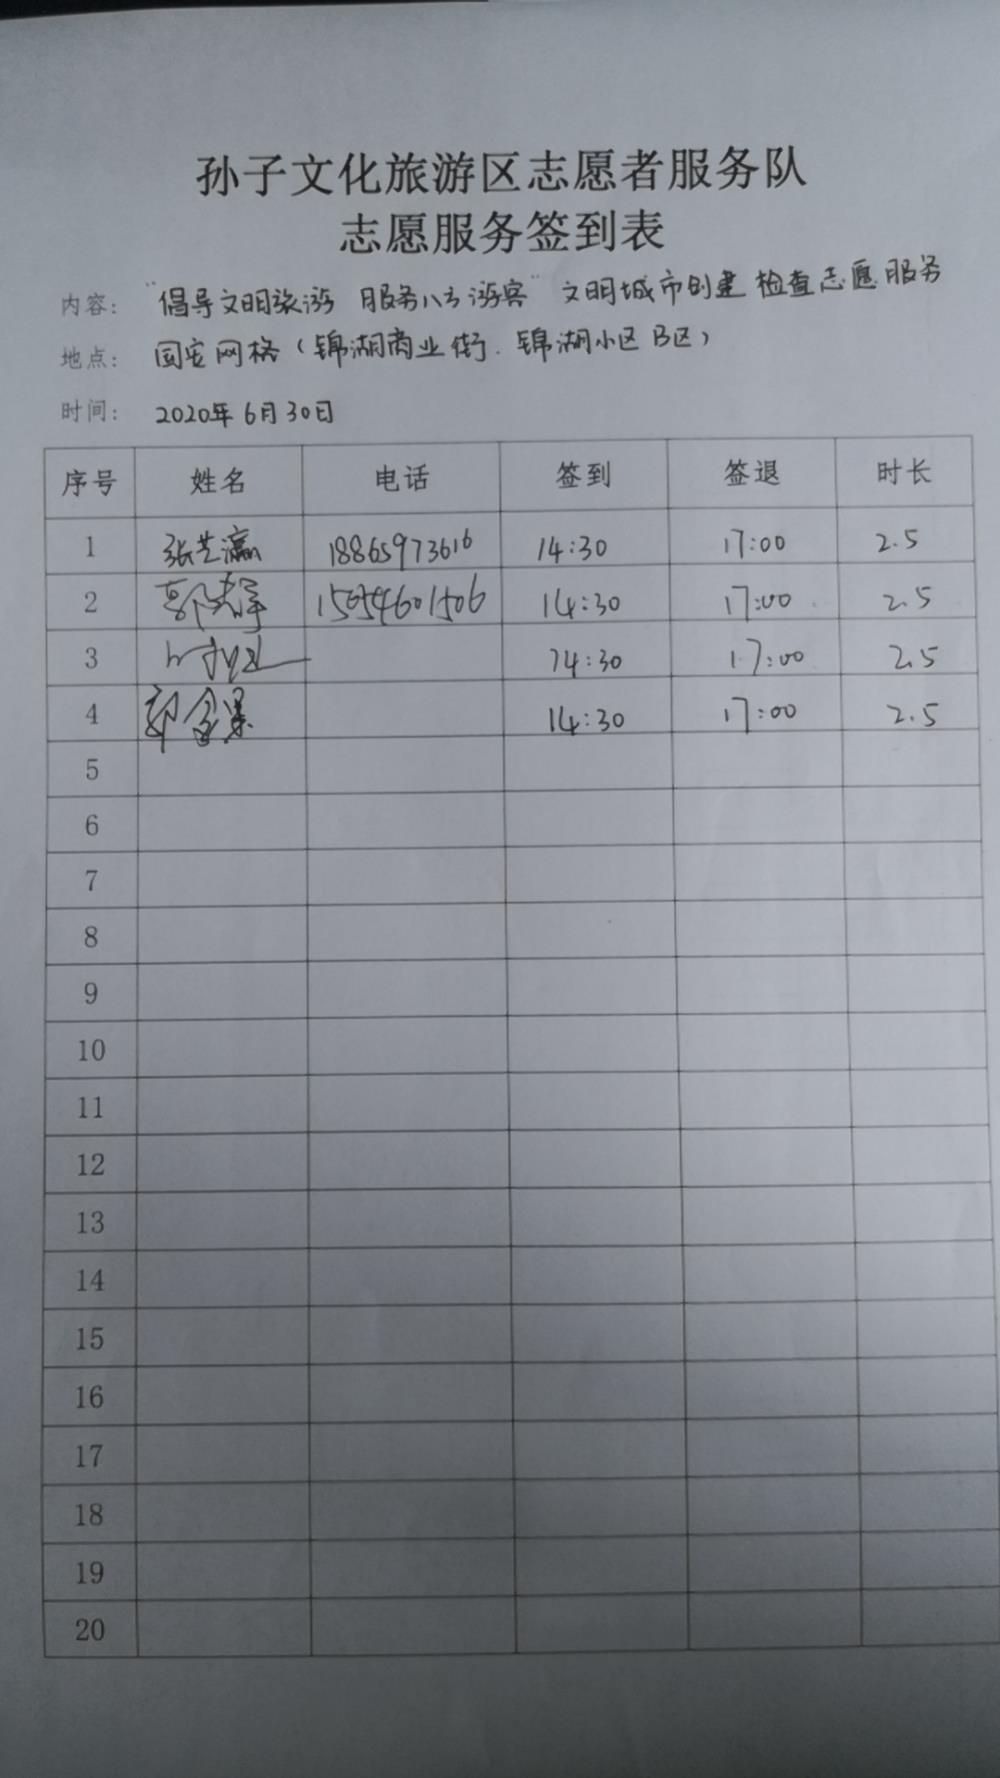 孙子文化旅游区志愿者服务队
志愿服务签到表
内容： "倡导文明旅游 服务八方游客" 文明城市创建 检查志愿服务
地点： 国安网格（锦湖商业街、锦湖小区B区）
时间： 2020年6月30日
序号 姓名 电话 签到 签退 时长
1 张芝瀛 18865973616 14:30 17:00 2.5
2 15054601506 14:30 17:00 2.5
3 14:30 17:00 2.5
4 14:30 17:00 2.5
5
6
7
8
9
10
11
12
13
14
15
16
17
18
19
20